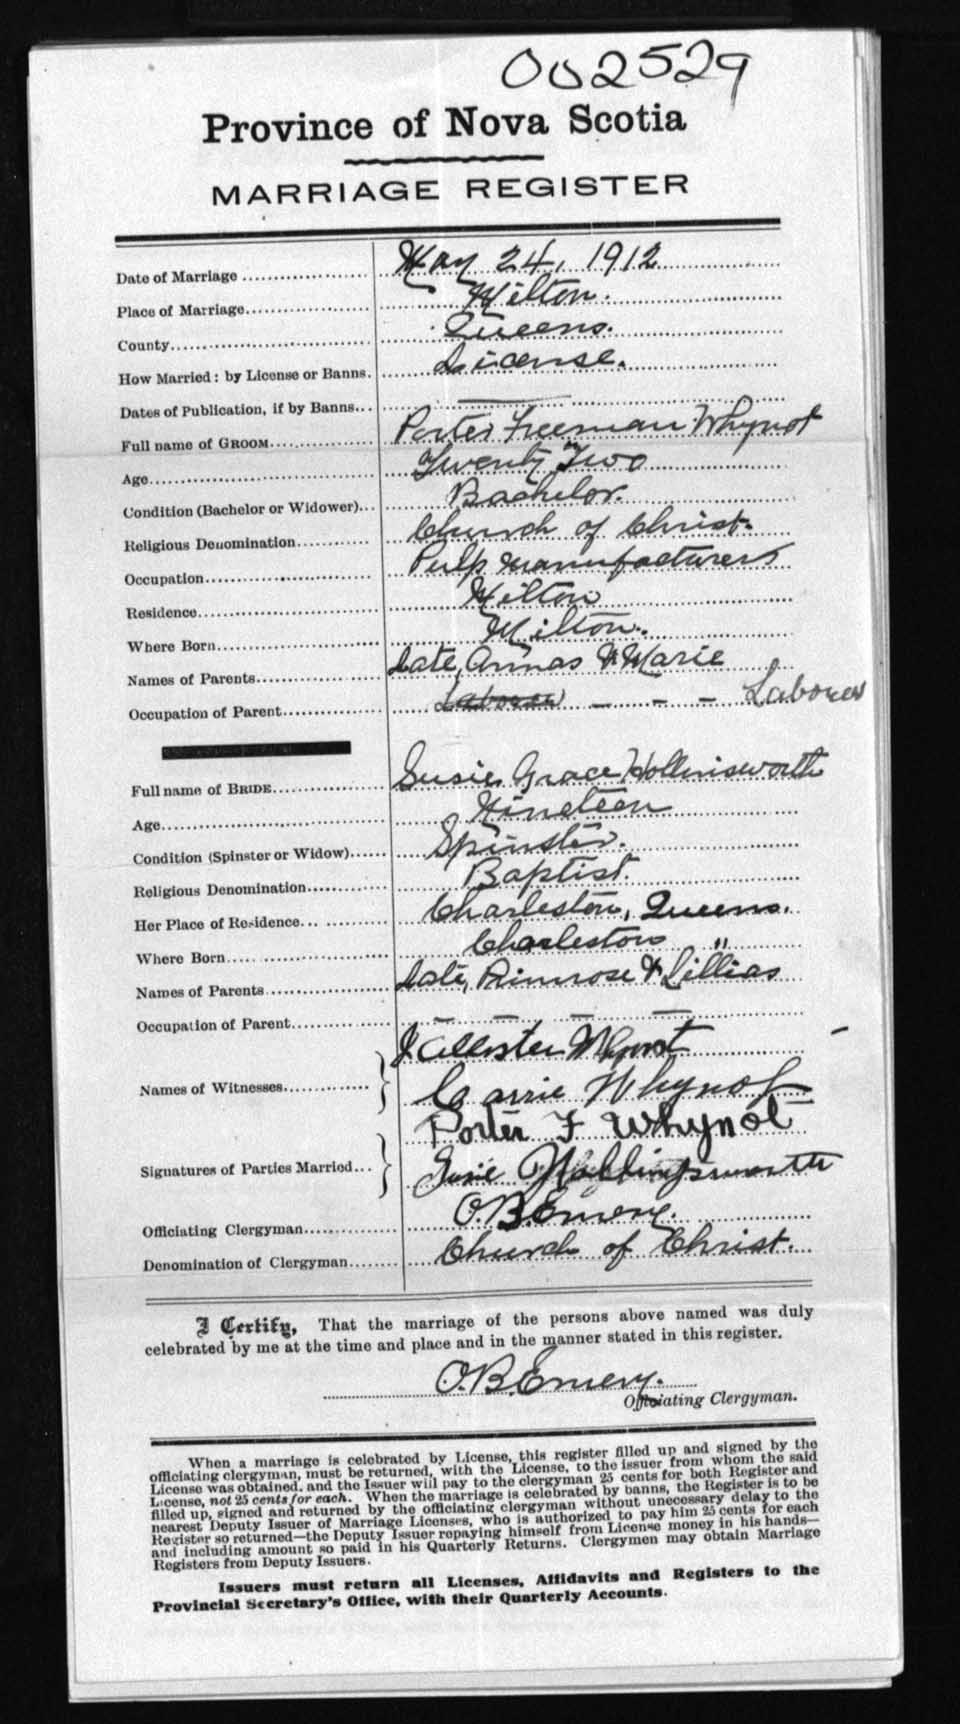 002529
Province of Nova Scotia
MARRIAGE REGISTER
Date of Marriage May 24, 1912
Place of Marriage Milton.
County Queens.
How Married: by License or Banns. License.
Dates of Publication, if by Banns...
Full name of GROOM Porter Freeman Whynot
Age Twenty Two
Condition (Bachelor or Widower)... Bachelor.
Religious Denomination Church of Christ.
Occupation Pulp manufacturers
Residence Milton
Where Born Milton.
Names of Parents Late, Annas & Marie
Occupation of Parent Laborer - - - Laborer
Full name of BRIDE Susie Grace Hollinsworth
Age Nineteen
Condition (Spinster or Widow) Spinster.
Religious Denomination Baptist.
Her Place of Residence Charleston, Queens.
Where Born Charleston "
Names of Parents Late, Primrose & Lillias
Occupation of Parent — — — —
Names of Witnesses Whynot
Carrie Whynot
Signatures of Parties Married Porter F Whynot
Susie Hollingsworth
Officiating Clergyman O.B. Emery.
Denomination of Clergyman Church of Christ.
I Certify, That the marriage of the persons above named was duly
celebrated by me at the time and place and in the manner stated in this register.
O.B. Emery.
Officiating Clergyman.
When a marriage is celebrated by License, this register filled up and signed by the
officiating clergyman, must be returned, with the License, to the issuer from whom the said
License was obtained, and the Issuer will pay to the clergyman 25 cents for both Register and
License, not 25 cents for each. When the marriage is celebrated by banns, the Register is to be
filled up, signed and returned by the officiating clergyman without unnecessary delay to the
nearest Deputy Issuer of Marriage Licenses, who is authorized to pay him 25 cents for each
Register so returned—the Deputy Issuer repaying himself from License money in his hands—
and including amount so paid in his Quarterly Returns. Clergymen may obtain Marriage
Registers from Deputy Issuers.
Issuers must return all Licenses, Affidavits and Registers to the
Provincial Secretary's Office, with their Quarterly Accounts.